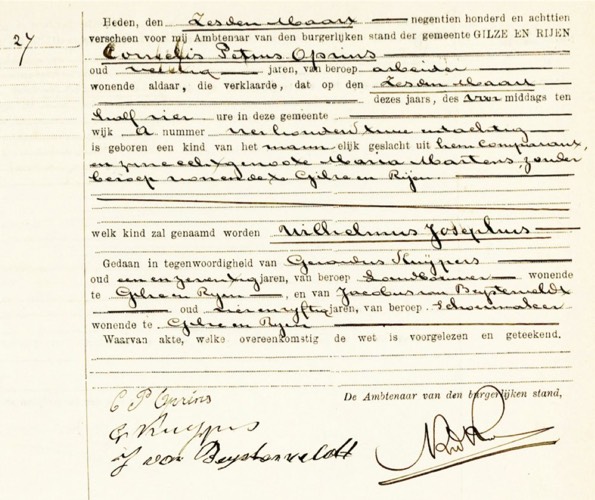 27
Heden, den Zesden Maart negentien honderd en achttien
verscheen voor mij Ambtenaar van den burgerlijken stand der gemeente GILZE EN RIJEN
Cornelis Petrus Oprins
oud veertig jaren, van beroep arbeider
wonende aldaar, die verklaarde, dat op den Zesden Maart
dezes jaars, des voor middags ten
half vier ure in deze gemeente
wijk A nummer vierhonderd twee entachtig
is geboren een kind van het mann elijk geslacht uit hem Comparant,
en zijne echtgenoote Maria Martens, zonder
beroep wonende te Gilze en Rijen.
welk kind zal genaamd worden Wilhelmus Josephus
Gedaan in tegenwoordigheid van Gerardus Kuijpers
oud een en zeventig jaren, van beroep Landbouwer wonende
te Gilze en Rijen, en van Jacobus van Beijsterveldt
oud vier en vijftig jaren, van beroep Schoenmaker
wonende te Gilze en Rijen
Waarvan akte, welke overeenkomstig de wet is voorgelezen en geteekend.
De Ambtenaar van den burgerlijken stand,
C P Oprins
G Kuijpers
J van Beijsterveldt